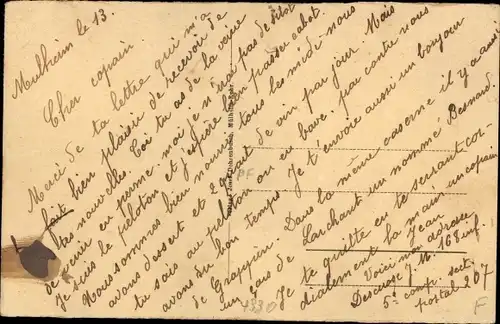 Mulheim le 13.
Cher copain
Merci de ta lettre qui m'a
fait bien plaisir de recevoir de
tes nouvelles. Toi tu as de la veine
de venir en perme moi je n'irai pas de sitôt
Je suis le peloton et j'espère bien passer cabot.
Nous sommes bien nourris tous les midi nous
avons dessert et quart de vin par jour. Mais
tu sais au peloton on en bave. par contre nous
avons du bon temps. Je t'envoie aussi un bonjour
de Grappin. Dans la même caserne il y a aussi
un gars de Larchant un nommé Besnard.
Je te quitte en te serrant cor-
dialement la main un copain
Jean
Voici mon adresse
Descrose J. M. 168 inf.
5e comp. sect.
postal 207
PF
4330